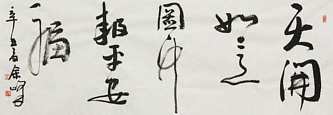 天開
如意
圖竹
報平安
福
辛丑